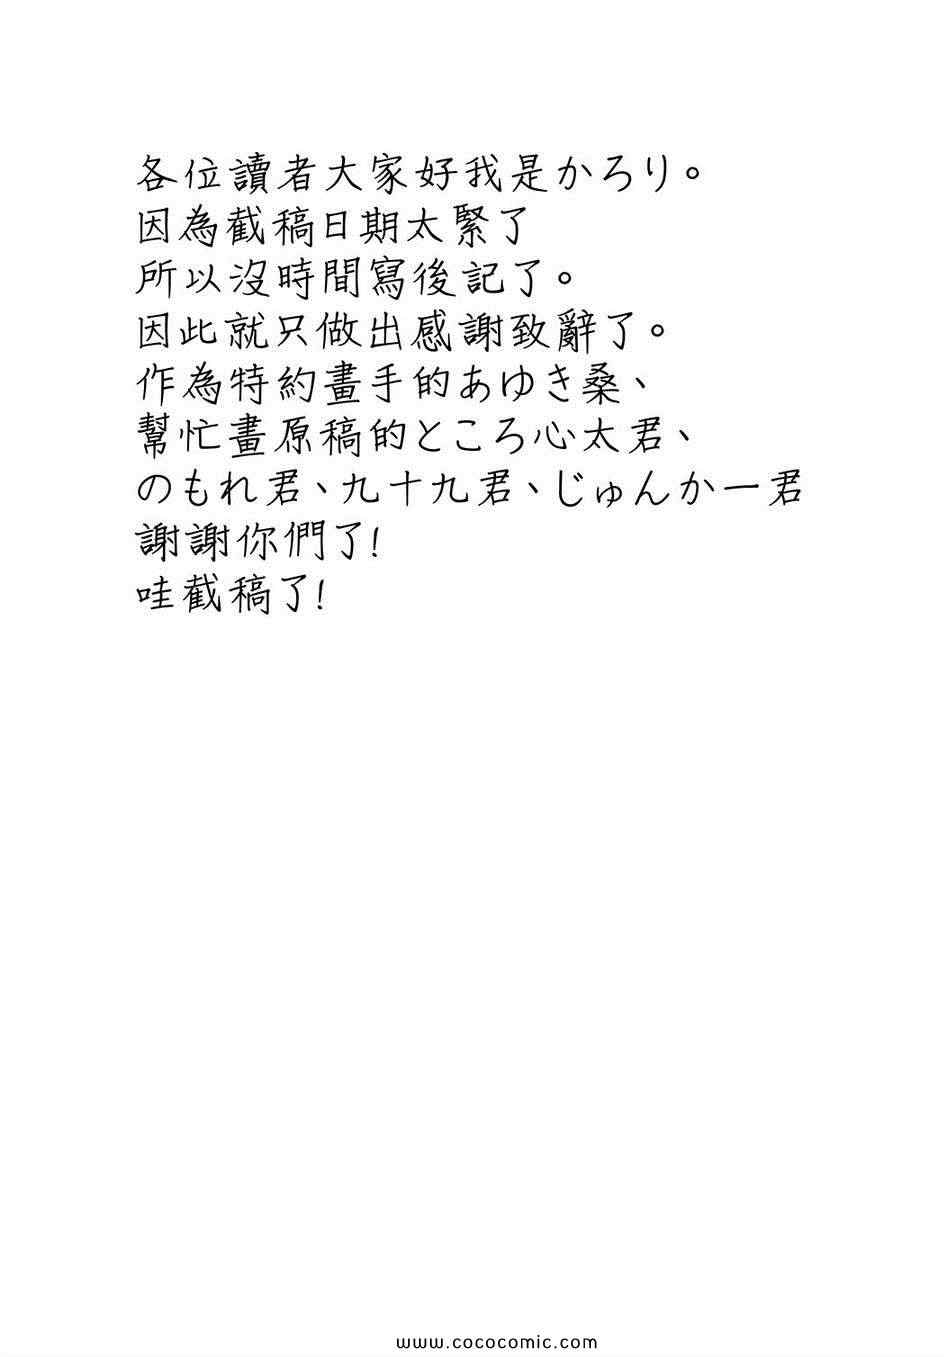 各位讀者大家好我是かろり。
因為截稿日期太緊了
所以沒時間寫後記了。
因此就只做出感謝致辭了。
作為特約畫手的あゆき桑、
幫忙畫原稿的ところ心太君、
のもれ君、九十九君、じゅんか一君
謝謝你們了!
哇截稿了!
www.cococomic.com